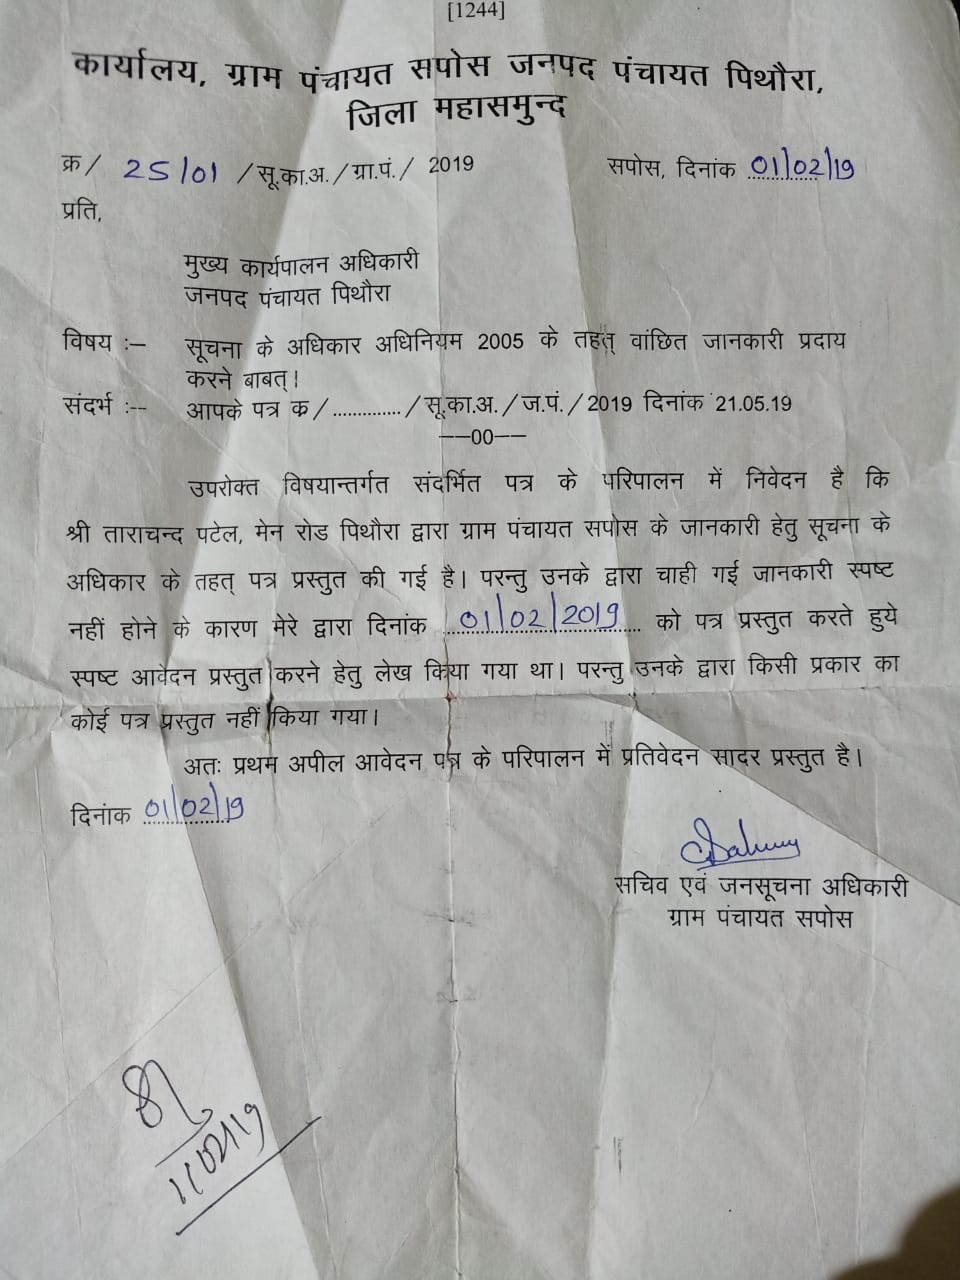 [1244]
कार्यालय, ग्राम पंचायत सपोस जनपद पंचायत पिथौरा,
जिला महासमुन्द
क्र/ 25/01 /सू.का.अ./ग्रा.पं./ 2019 सपोस, दिनांक 01/02/19
प्रति,
मुख्य कार्यपालन अधिकारी
जनपद पंचायत पिथौरा
विषय :– सूचना के अधिकार अधिनियम 2005 के तहत् वांछित जानकारी प्रदाय
करने बाबत्।
संदर्भ :-- आपके पत्र क्र/ ............. /सू.का.अ./ज.पं./2019 दिनांक 21.05.19
––00––
उपरोक्त विषयान्तर्गत संदर्भित पत्र के परिपालन में निवेदन है कि
श्री ताराचन्द पटेल, मेन रोड पिथौरा द्वारा ग्राम पंचायत सपोस के जानकारी हेतु सूचना के
अधिकार के तहत् पत्र प्रस्तुत की गई है। परन्तु उनके द्वारा चाही गई जानकारी स्पष्ट
नहीं होने के कारण मेरे द्वारा दिनांक 01/02/2019 को पत्र प्रस्तुत करते हुये
स्पष्ट आवेदन प्रस्तुत करने हेतु लेख किया गया था। परन्तु उनके द्वारा किसी प्रकार का
कोई पत्र प्रस्तुत नहीं किया गया।
अतः प्रथम अपील आवेदन पत्र के परिपालन में प्रतिवेदन सादर प्रस्तुत है।
दिनांक 01/02/19
सचिव एवं जनसूचना अधिकारी
ग्राम पंचायत सपोस